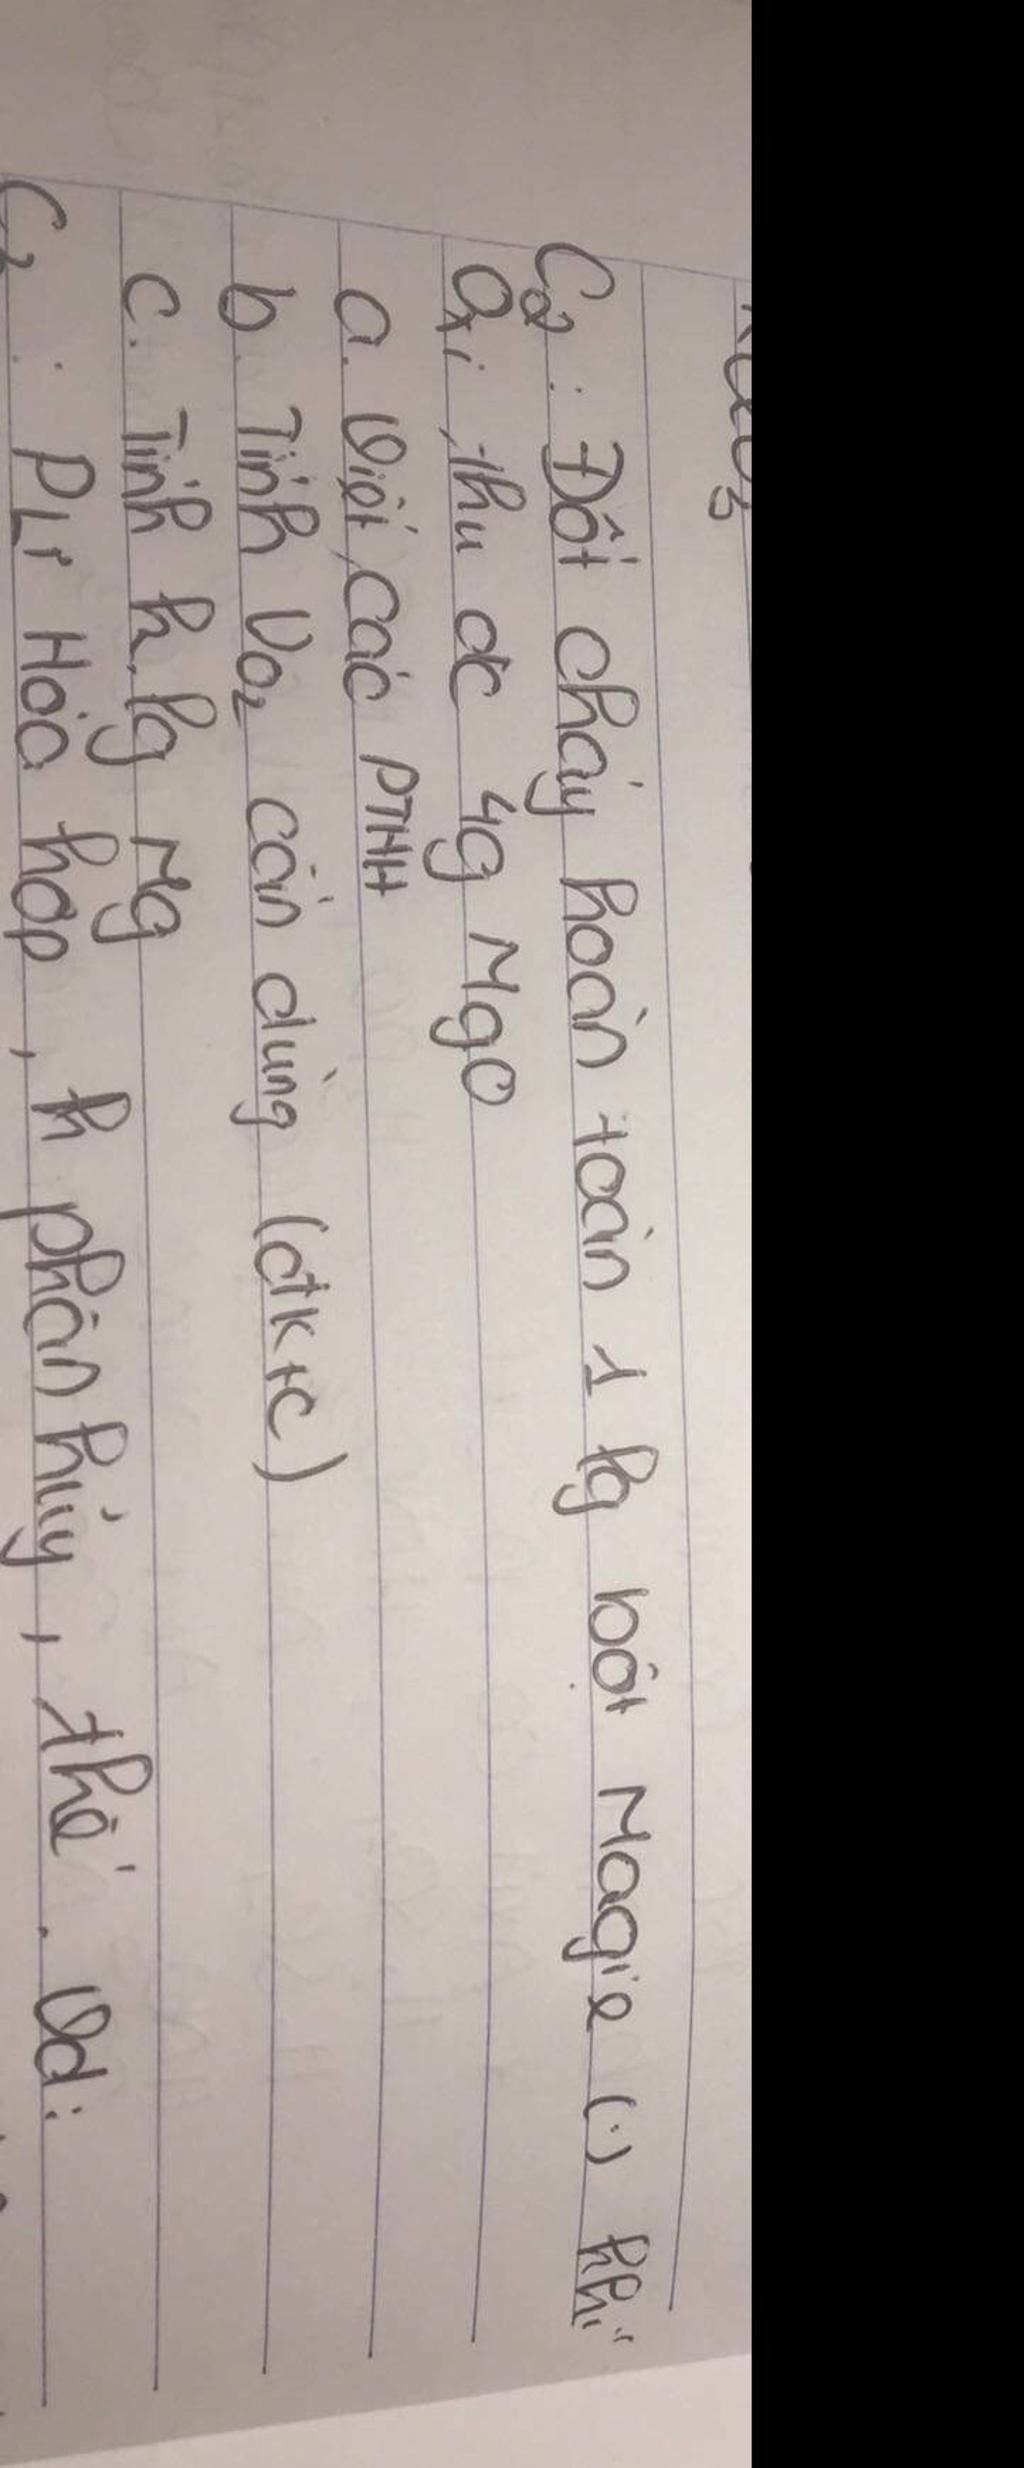 C2: Đốt cháy hoàn toàn 1 lg bột Magie (.) khí
Oxi, thu đc 4g MgO
a. Viết các PTHH
b. Tính VO₂ cần dùng (đktc)
c. Tính k. lg Mg
C3: PƯ Hóa hợp, p phân hủy, thế. Vd: